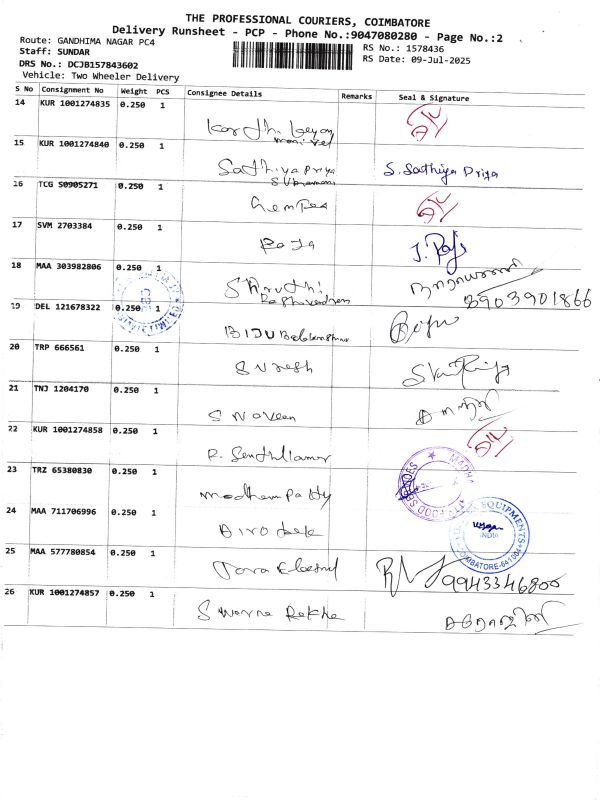 THE PROFESSIONAL COURIERS, COIMBATORE
Delivery Runsheet - PCP - Phone No.:9047080280 - Page No.:2
Route: GANDHIMA NAGAR PC4
RS No.: 1578436
Staff: SUNDAR
RS Date: 09-Jul-2025
DRS No.: DCJB157843602
Vehicle: Two Wheeler Delivery
S No Consignment No Weight PCS Consignee Details Remarks Seal & Signature
14 KUR 1001274835 0.250 1
15 KUR 1001274840 0.250 1
Sathiyapriya S. Sathiya Priya
16 TCG S0905271 0.250 1
17 SVM 2703384 0.250 1
Raja J. Raja
18 MAA 303982806 0.250 1
Shruthi
Raghavendran
8903901866
19 DEL 121678322 0.250 1
BIJU
20 TRP 666561 0.250 1
Suresh
21 TNJ 1204170 0.250 1
S Naveen
22 KUR 1001274858 0.250 1
23 TRZ 65380830 0.250 1
24 MAA 711706996 0.250 1
EQUIPMENTS
INDIA
COIMBATORE-641004
25 MAA 577780854 0.250 1
9943346800
26 KUR 1001274857 0.250 1
Swarna Rekha